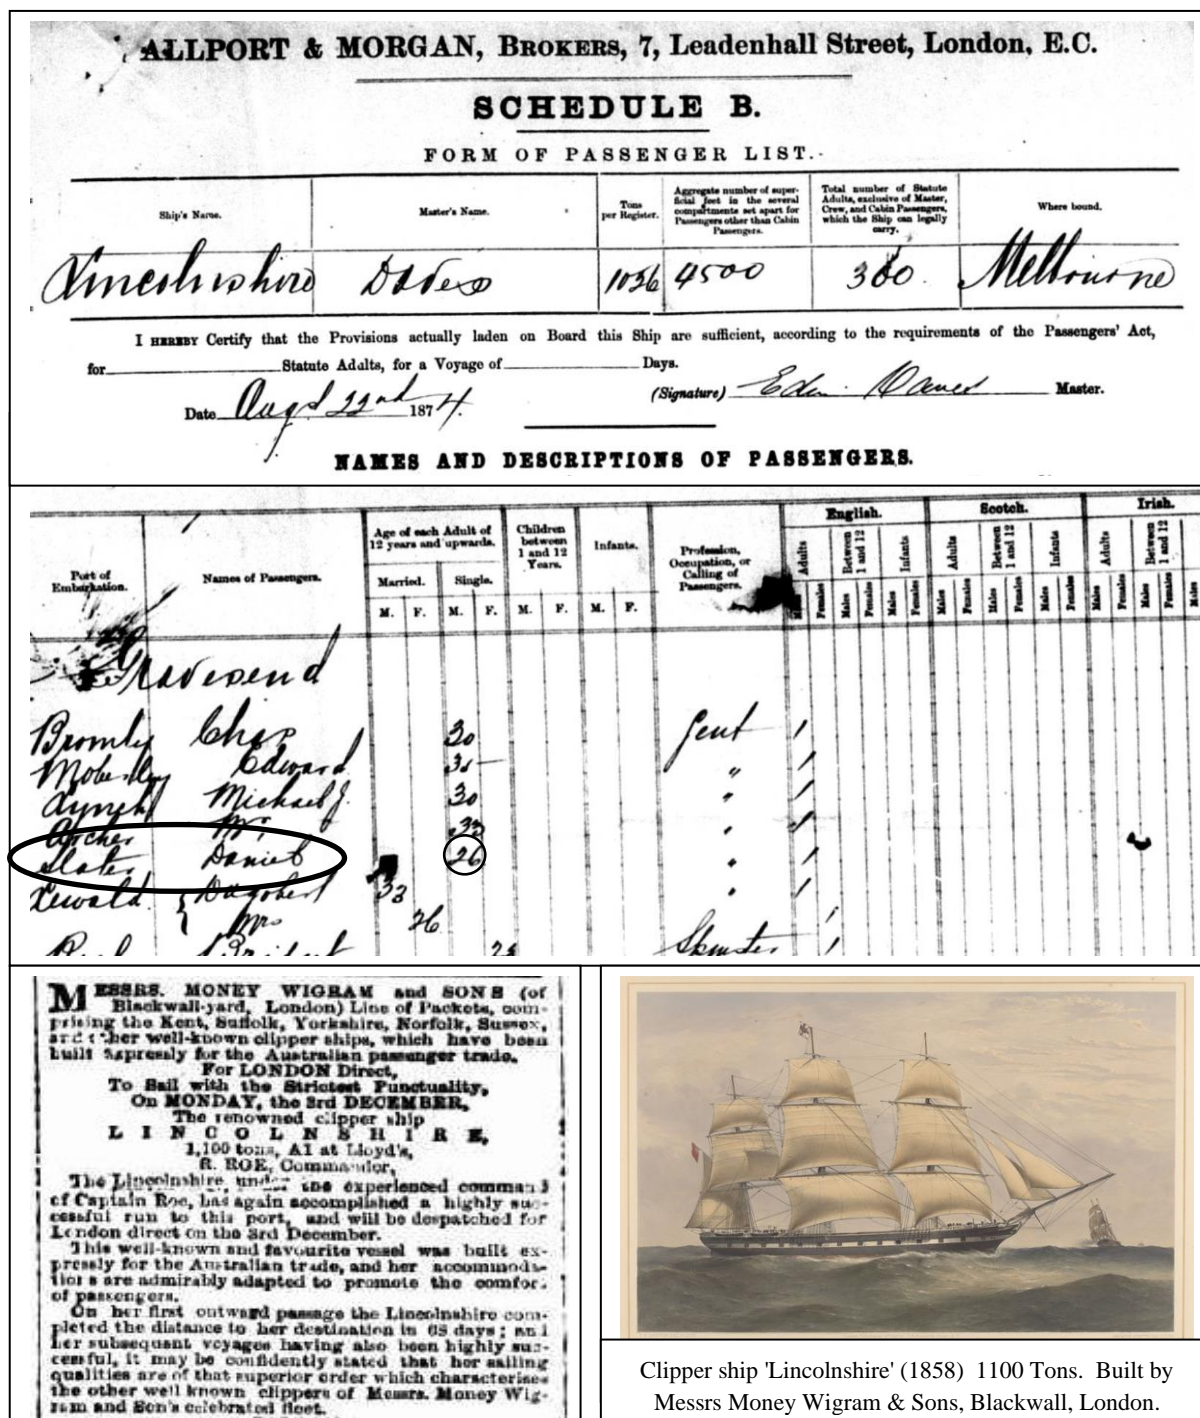 ALLPORT & MORGAN, BROKERS, 7, Leadenhall Street, London, E.C.
SCHEDULE B.
FORM OF PASSENGER LIST.
Ship's Name. Master's Name. Tons per Register. Aggregate number of superficial feet in the several compartments set apart for Passengers other than Cabin Passengers. Total number of Statute Adults, exclusive of Master, Crew, and Cabin Passengers, which the Ship can legally carry. Where bound.
Lincolnshire 1036 4500 300 Melbourne
I HEREBY Certify that the Provisions actually laden on Board this Ship are sufficient, according to the requirements of the Passengers' Act,
for Statute Adults, for a Voyage of Days.
(Signature) Master.
Date Augst 22nd 1874.
NAMES AND DESCRIPTIONS OF PASSENGERS.
Port of Embarkation. Names of Passengers. Age of each Adult of 12 years and upwards. Children between 1 and 12 Years. Infants. Profession, Occupation, or Calling of Passengers. English. Scotch. Irish.
Married. Single.
M. F. M. F. M. F. M. F.
Adults Between 1 and 12 Infants Adults Between 1 and 12 Infants Adults Between 1 and 12
Males Females Males Females Males Females Males Females Males Females Males Females Males Females Males Females Males
Gravesend
Bromley Chas 30 Gent 1
Edward " 1
Lynch Michael J. 30 " 1
Archer Mr 33 " 1
Slater Daniel 26 " 1
Lewald Dagobert 33 " 1
Mrs 26 1
Spinster 1
MESSRS. MONEY WIGRAM and SONS (of
Blackwall-yard, London) Line of Packets, com-
prising the Kent, Suffolk, Yorkshire, Norfolk, Sussex,
and other well-known clipper ships, which have been
built expressly for the Australian passenger trade.
For LONDON Direct,
To Sail with the Strictest Punctuality,
On MONDAY, the 3rd DECEMBER,
The renowned clipper ship
LINCOLNSHIRE,
1,100 tons, A1 at Lloyd's,
R. ROE, Commander,
The Lincolnshire, under the experienced command
of Captain Roe, has again accomplished a highly suc-
cessful run to this port, and will be despatched for
London direct on the 3rd December.
This well-known and favourite vessel was built ex-
pressly for the Australian trade, and her accommoda-
tions are admirably adapted to promote the comfort
of passengers.
On her first outward passage the Lincolnshire com-
pleted the distance to her destination in 65 days; and
her subsequent voyages having also been highly suc-
cessful, it may be confidently stated that her sailing
qualities are of that superior order which characterises
the other well known clippers of Messrs. Money Wig-
ram and Son's celebrated fleet.
Clipper ship 'Lincolnshire' (1858) 1100 Tons. Built by
Messrs Money Wigram & Sons, Blackwall, London.